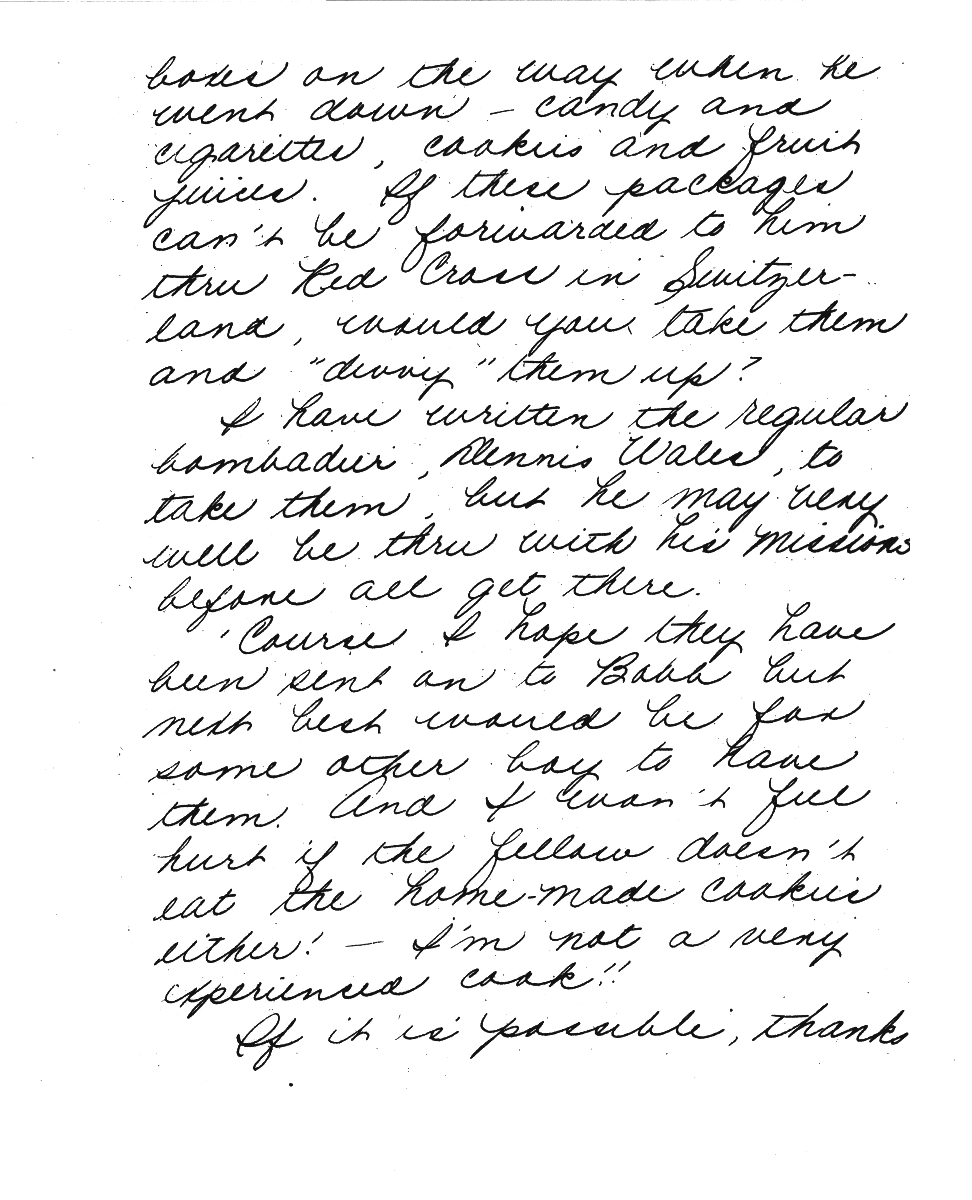 boxes on the way when he
went down – candy and
cigarettes, cookies and fruit
juices. If these packages
can't be forwarded to him
thru Red Cross in Switzer-
land, would you take them
and "divvy" them up?
I have written the regular
bombadier, Dennis Wales, to
take them, but he may very
well be thru with his missions
before all get there.
'Course I hope they have
been sent on to Bobb but
next best would be for
some other boy to have
them. And I won't feel
hurt if the fellow doesn't
eat the home-made cookies
either! — I'm not a very
experienced cook!!
If it is possible, thanks